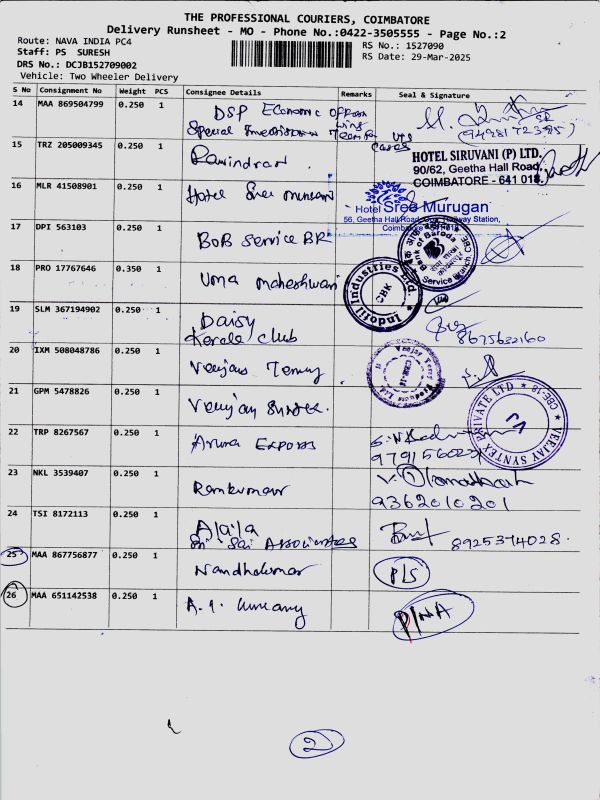 THE PROFESSIONAL COURIERS, COIMBATORE
Delivery Runsheet - MO - Phone No.:0422-3505555 - Page No.:2
Route: NAVA INDIA PC4
Staff: PS SURESH
DRS No.: DCJB152709002
Vehicle: Two Wheeler Delivery
RS No.: 1527090
RS Date: 29-Mar-2025
S No Consignment No Weight PCS Consignee Details Remarks Seal & Signature
14 MAA 869504799 0.250 1 DSP Economic offence wing
Special Investigation Team for UTS cases
(9498172395)
15 TRZ 205009345 0.250 1 Ravindran
HOTEL SIRUVANI (P) LTD.
90/62, Geetha Hall Road,
COIMBATORE - 641 018.
16 MLR 41508901 0.250 1 Hotel Sree murugan
Hotel Sree Murugan
56, Geetha Hall Road, Opp. Railway Station,
Coimbatore
17 DPI 563103 0.250 1 BOB Service BR
Bank of Baroda
Service Branch, CBE
18 PRO 17767646 0.350 1 Uma maheshwari
Indofil Industries Ltd.
CBK
19 SLM 367194902 0.250 1 Daisy
Kerala club
8675632160
20 IXM 508048786 0.250 1 Veejay Terry
Veejay Terry Products Ltd
21 GPM 5478826 0.250 1 Veejay Syntex
VEEJAY SYNTEX PRIVATE LTD ★ CBE-18 ★
22 TRP 8267567 0.250 1 Aruna Exports
23 NKL 3539407 0.250 1 Ramkumar
9362010201
24 TSI 8172113 0.250 1 Alaia
Sri Sai Associates
8925374028
25 MAA 867756877 0.250 1 Nandhakumar
P/S
26 MAA 651142538 0.250 1 A.1.
P/NA
2